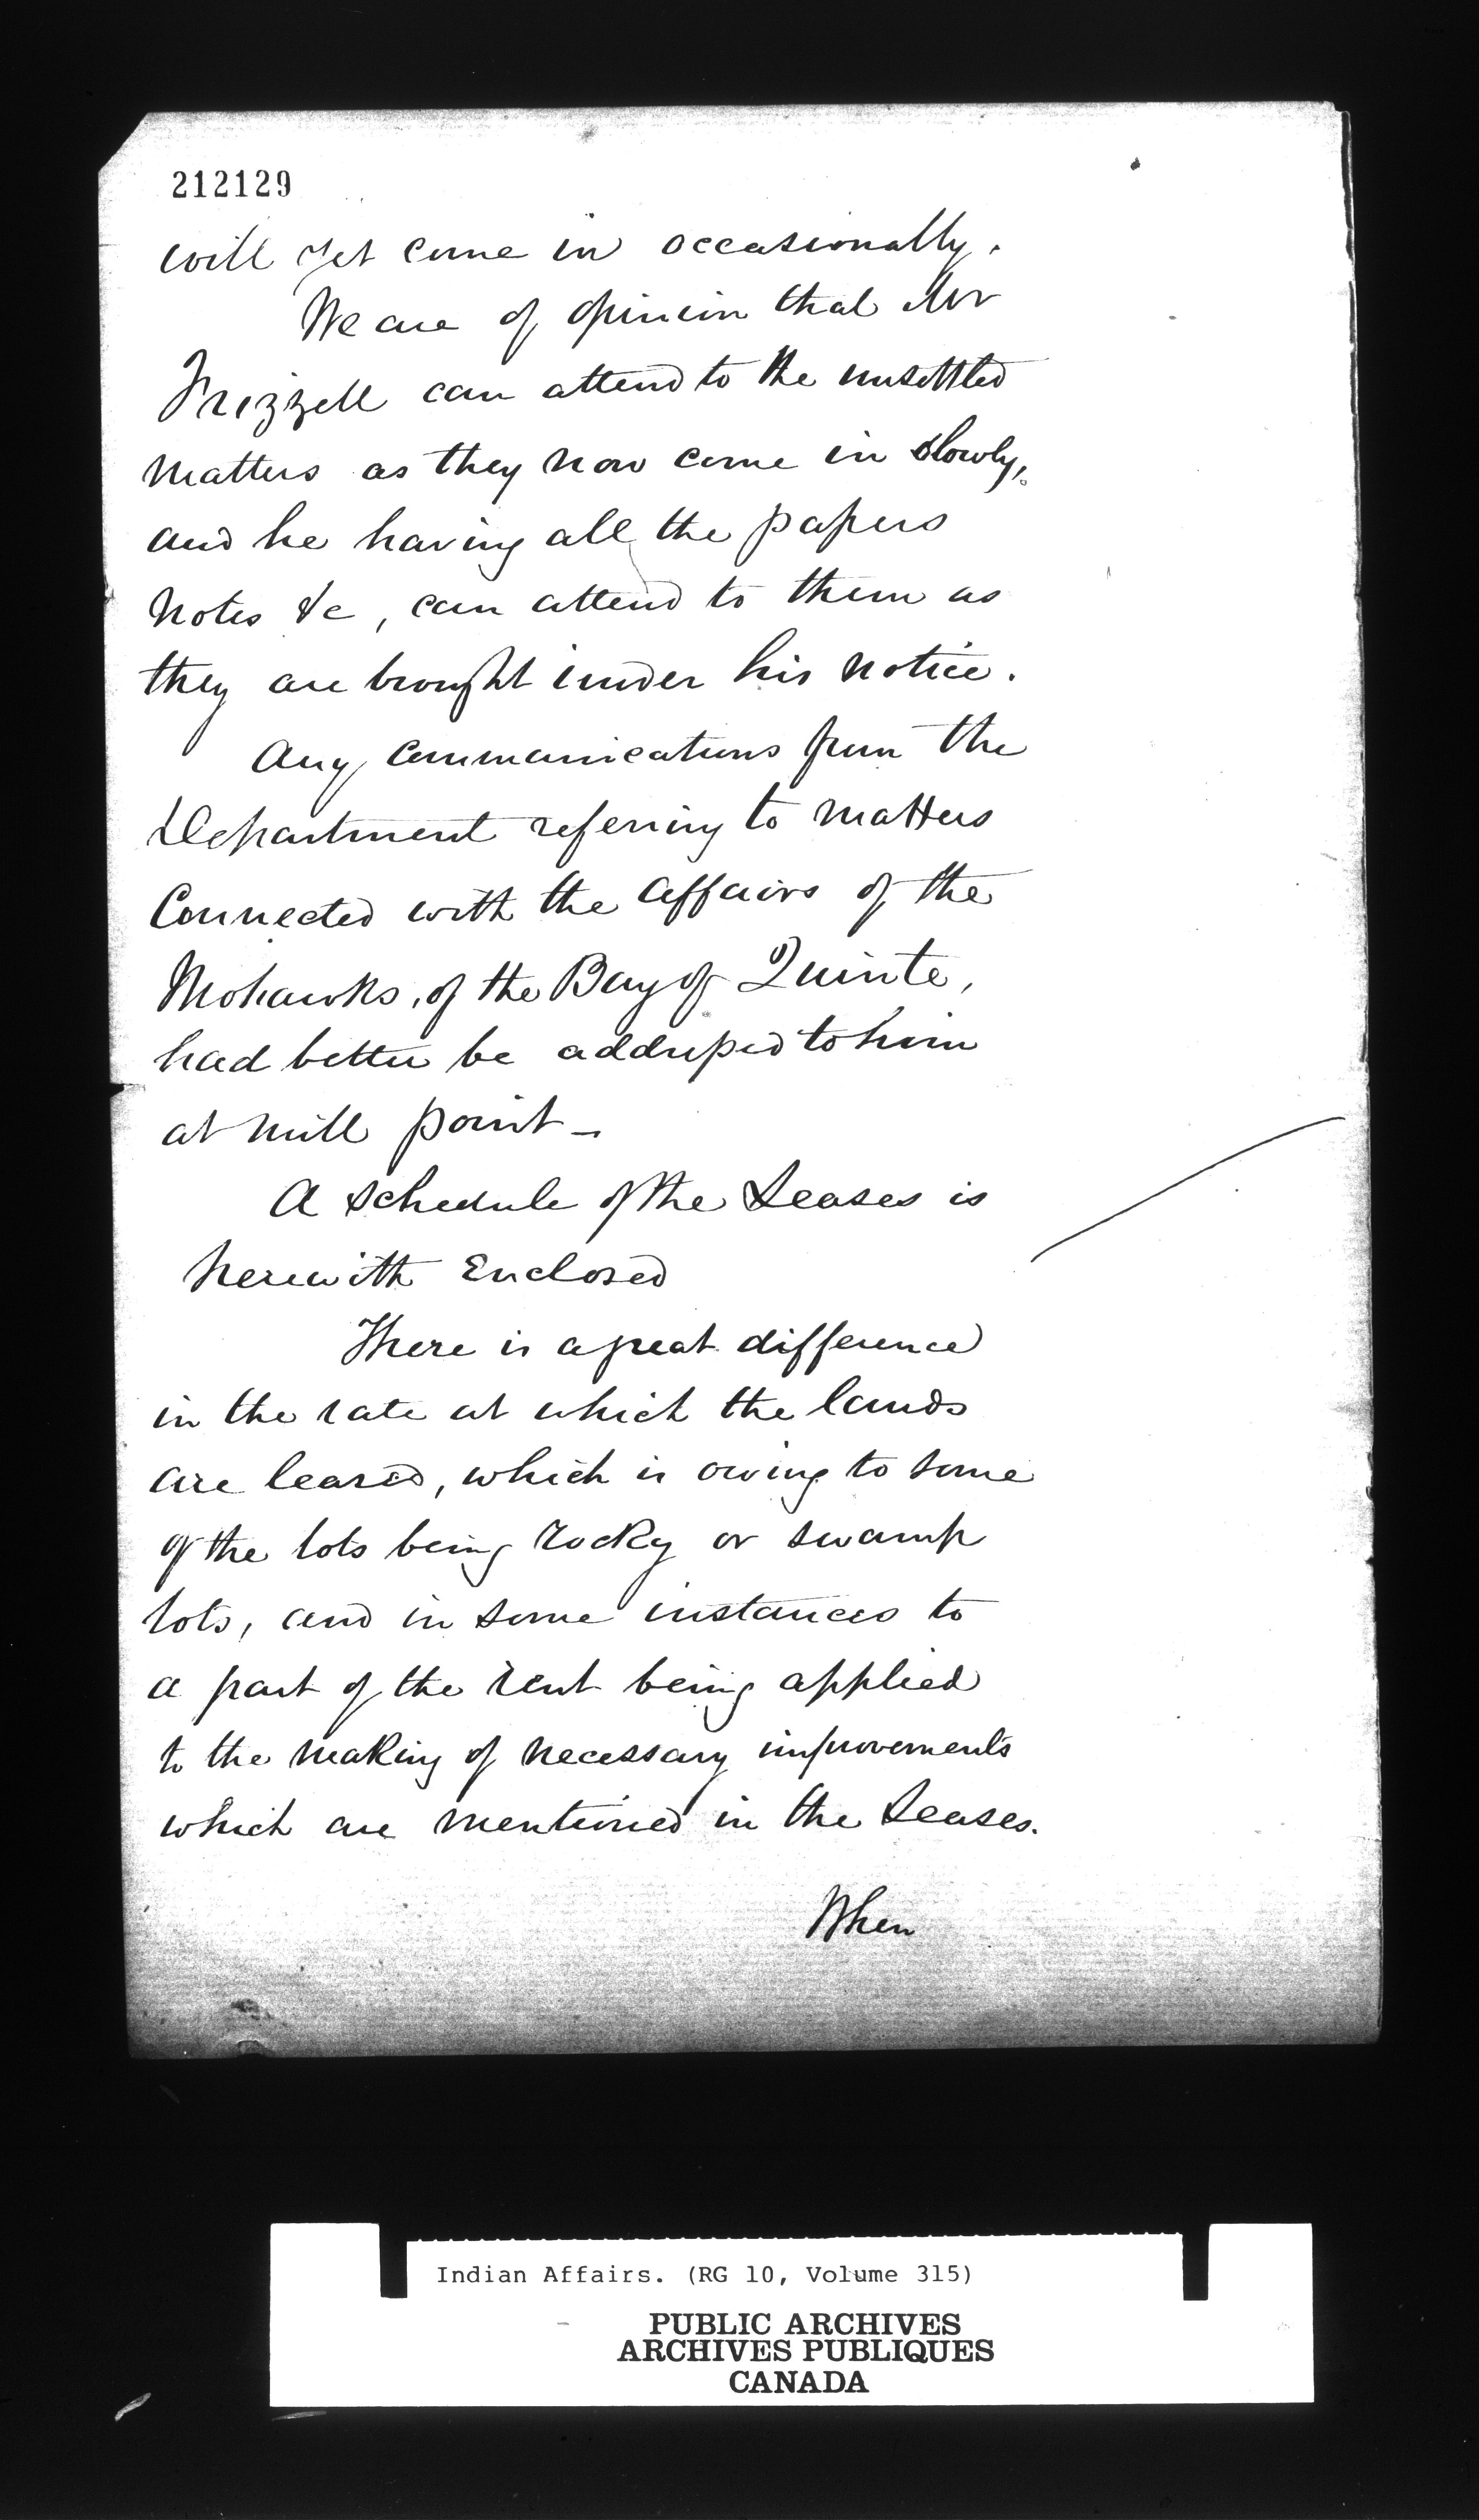 212129
will yet come in occasionally.
We are of opinion that Mr
Frizzell can attend to the unsettled
matters as they now come in slowly,
and he having all the papers
notes &c, can attend to them as
they are brought under his notice.
Any communications from the
Department referring to matters
Connected with the affairs of the
Mohawks, of the Bay of Quinte,
had better be addressed to him
at Mill point -
A schedule of the Leases is
herewith Enclosed
There is a great difference
in the rate at which the lands
are leased, which is owing to some
of the lots being rocky or swamp
lots, and in some instances to
a part of the rent being applied
to the making of necessary improvements
which are mentioned in the Leases.
When
Indian Affairs. (RG 10, Volume 315)
PUBLIC ARCHIVES
ARCHIVES PUBLIQUES
CANADA